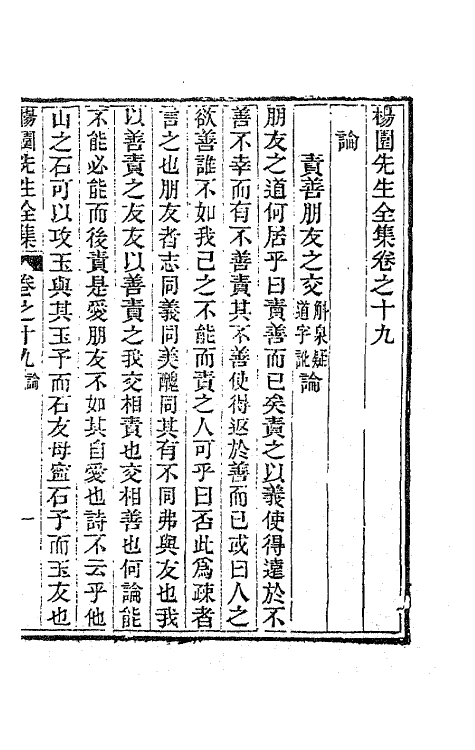 楊園先生全集卷之十九
論
責善朋友之交斛泉疑道字訛論
朋友之道何居乎曰責善而已矣責之以義使得遠於不
善不幸而有不善責其不善使得返於善而已或曰人之
欲善誰不如我己之不能而責之人可乎曰否此爲疎者
言之也朋友者志同義同美醜同其有不同弗與友也我
以善責之友友以善責之我交相責也交相善也何論能
不能必能而後責是愛朋友不如其自愛也詩不云乎他
山之石可以攻玉與其玉予而石友毋寧石予而玉友也
楊園先生全集 卷之十九 論 一